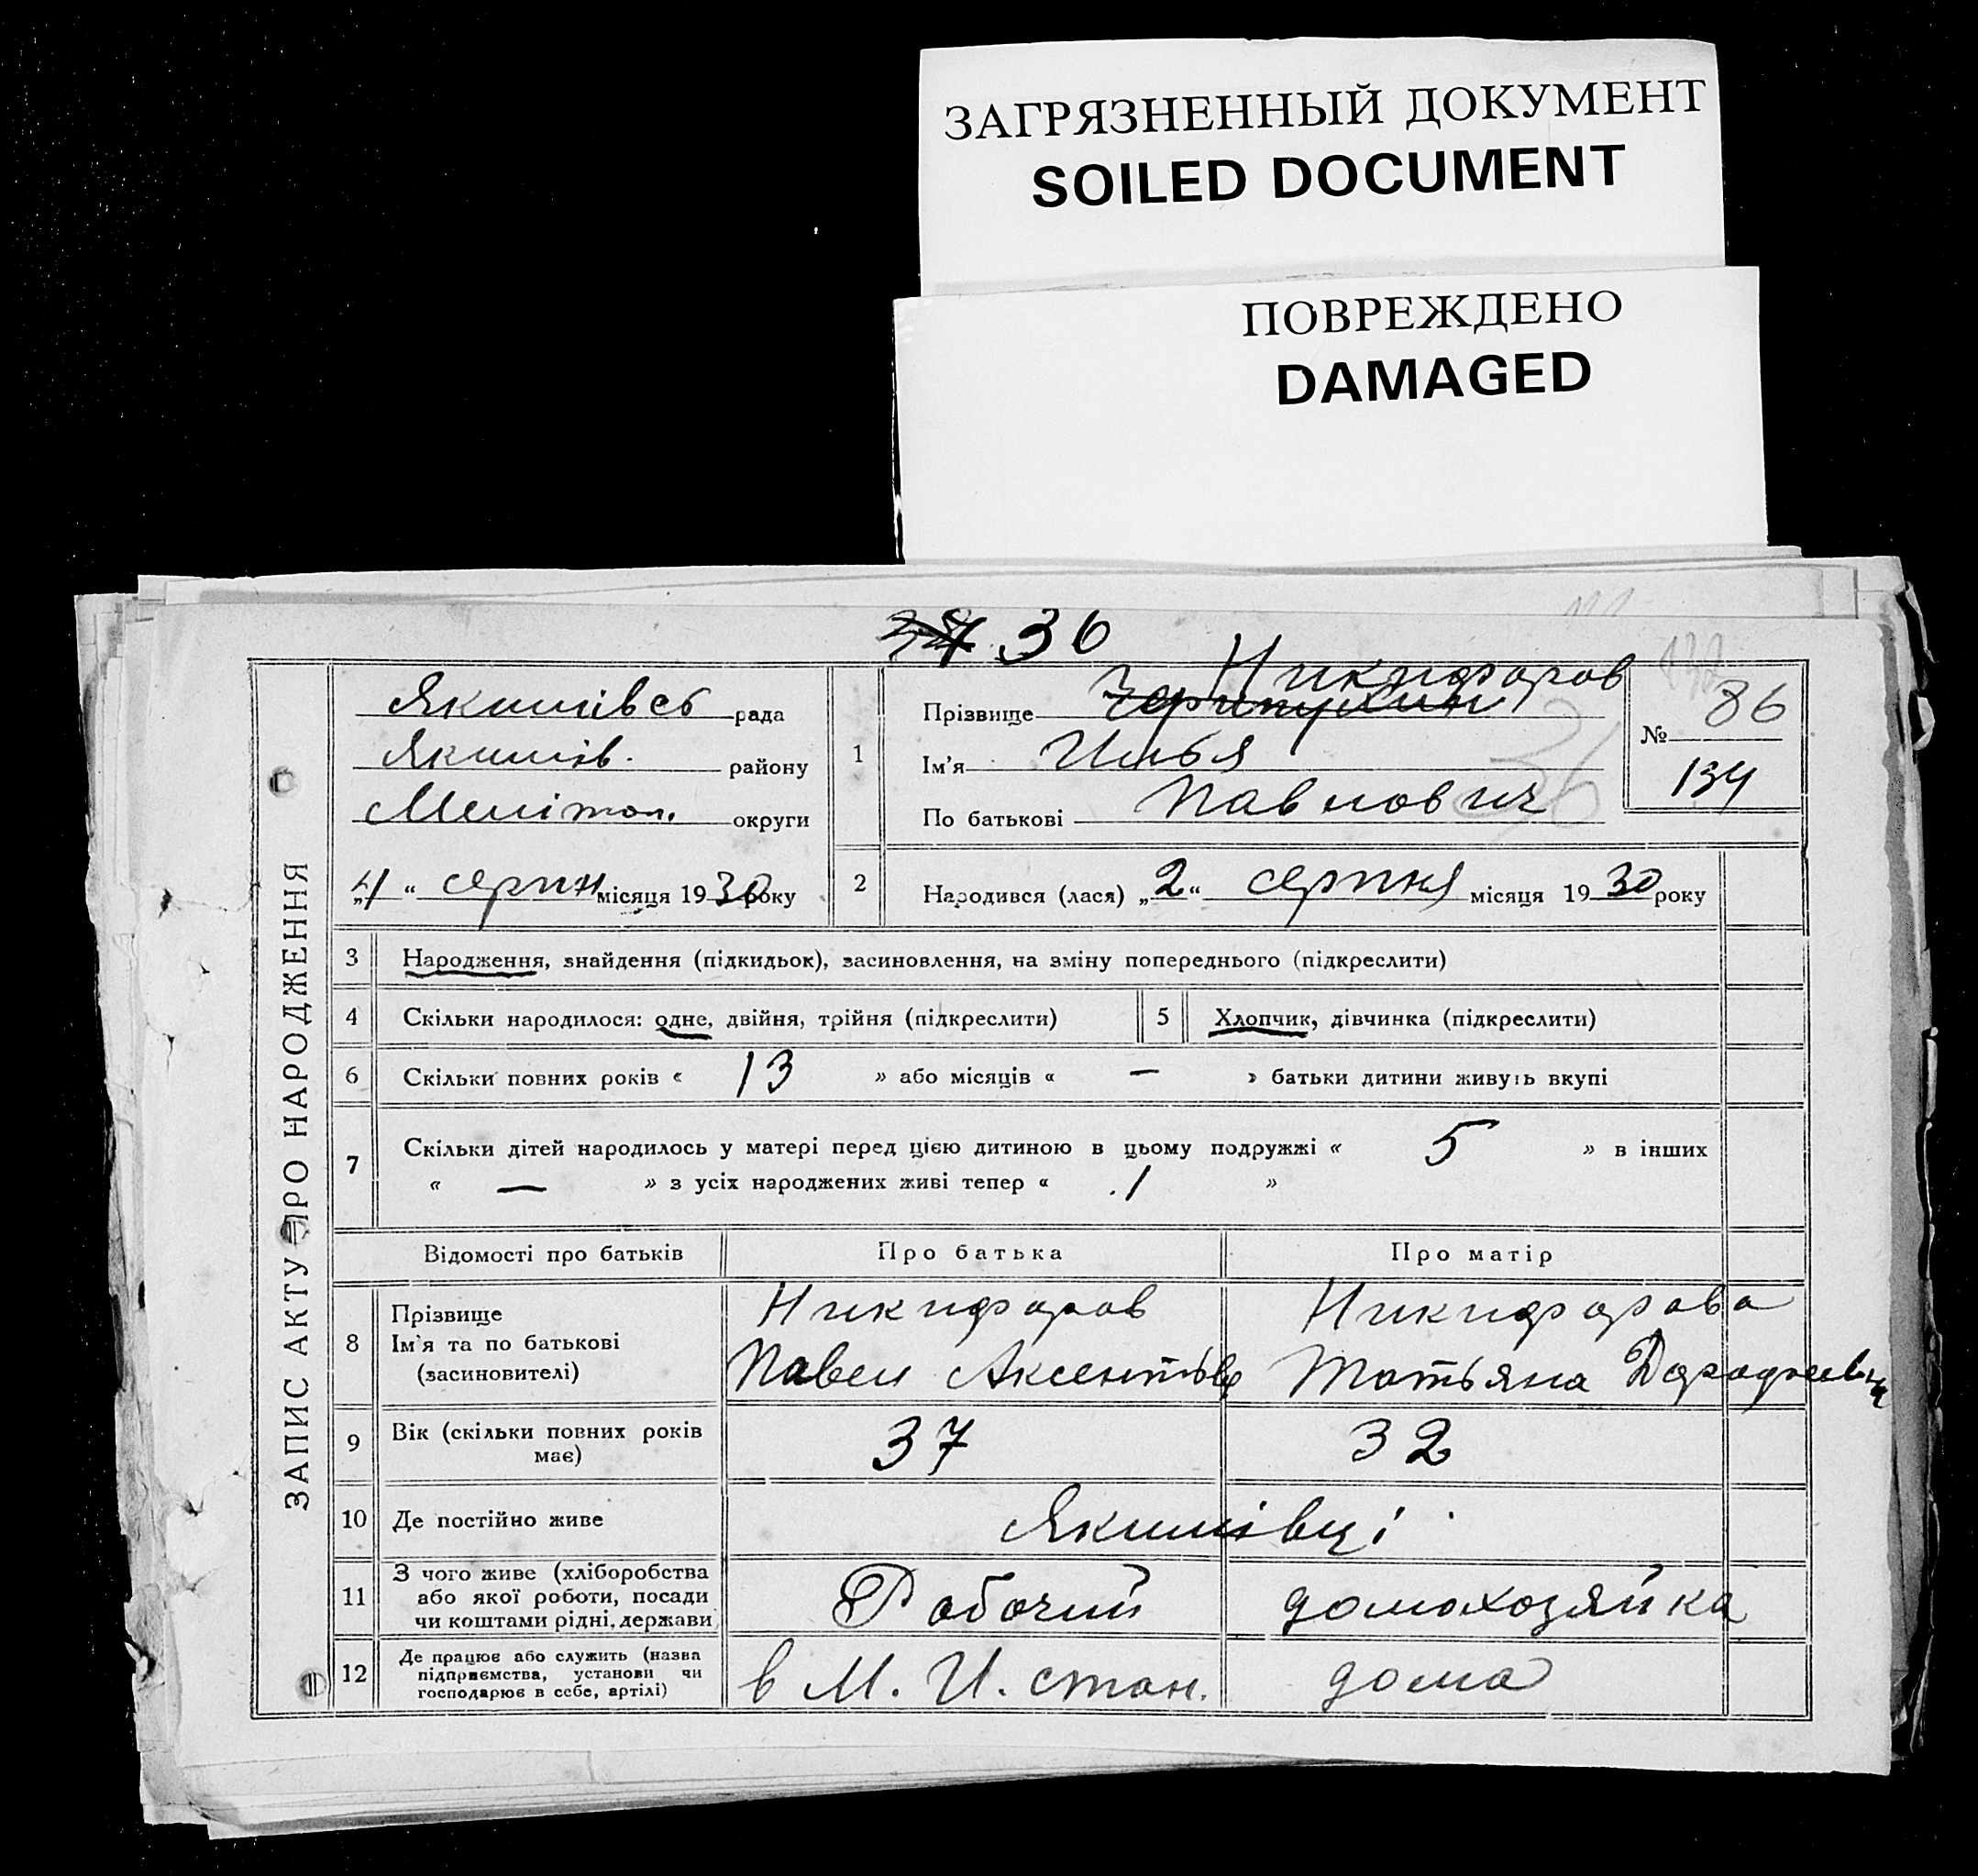 ЗАГРЯЗНЕННЫЙ ДОКУМЕНТ
SOILED DOCUMENT
ПОВРЕЖДЕНО
DAMAGED
36
ЗАПИС АКТУ ПРО НАРОДЖЕННЯ
Якимівсь рада
Якимів. району
Мелітоп. округи
„4“ серпн місяця 1930 року
1
Никифоров
Прізвище
Ім'я Илья
По батькові Павлович
№ 86
134
36
2 Народився (лася) „2“ серпня місяця 1930 року
3 Народження, знайдення (підкидьок), засиновлення, на зміну попереднього (підкреслити)
4 Скільки народилося: одне, двійня, трійня (підкреслити) 5 Хлопчик, дівчинка (підкреслити)
6 Скільки повних років « 13 » або місяців « — » батьки дитини живуть вкупі
7 Скільки дітей народилось у матері перед цією дитиною в цьому подружжі « 5 » в інших
« — » з усіх народжених живі тепер « 1 »
Відомості про батьків Про батька Про матір
8 Прізвище Никифоров Никифорова
Ім'я та по батькові Павел Аксентьв Татьяна
(засиновителі)
9 Вік (скільки повних років має) 37 32
10 Де постійно живе Якимівці
11 З чого живе (хліборобства
або якої роботи, посади Рабочий домохозяйка
чи коштами рідні, держави
12 Де працює або служить (назва
підприємства, установи чи в М. И. стан. дома
господарює в себе, артілі)